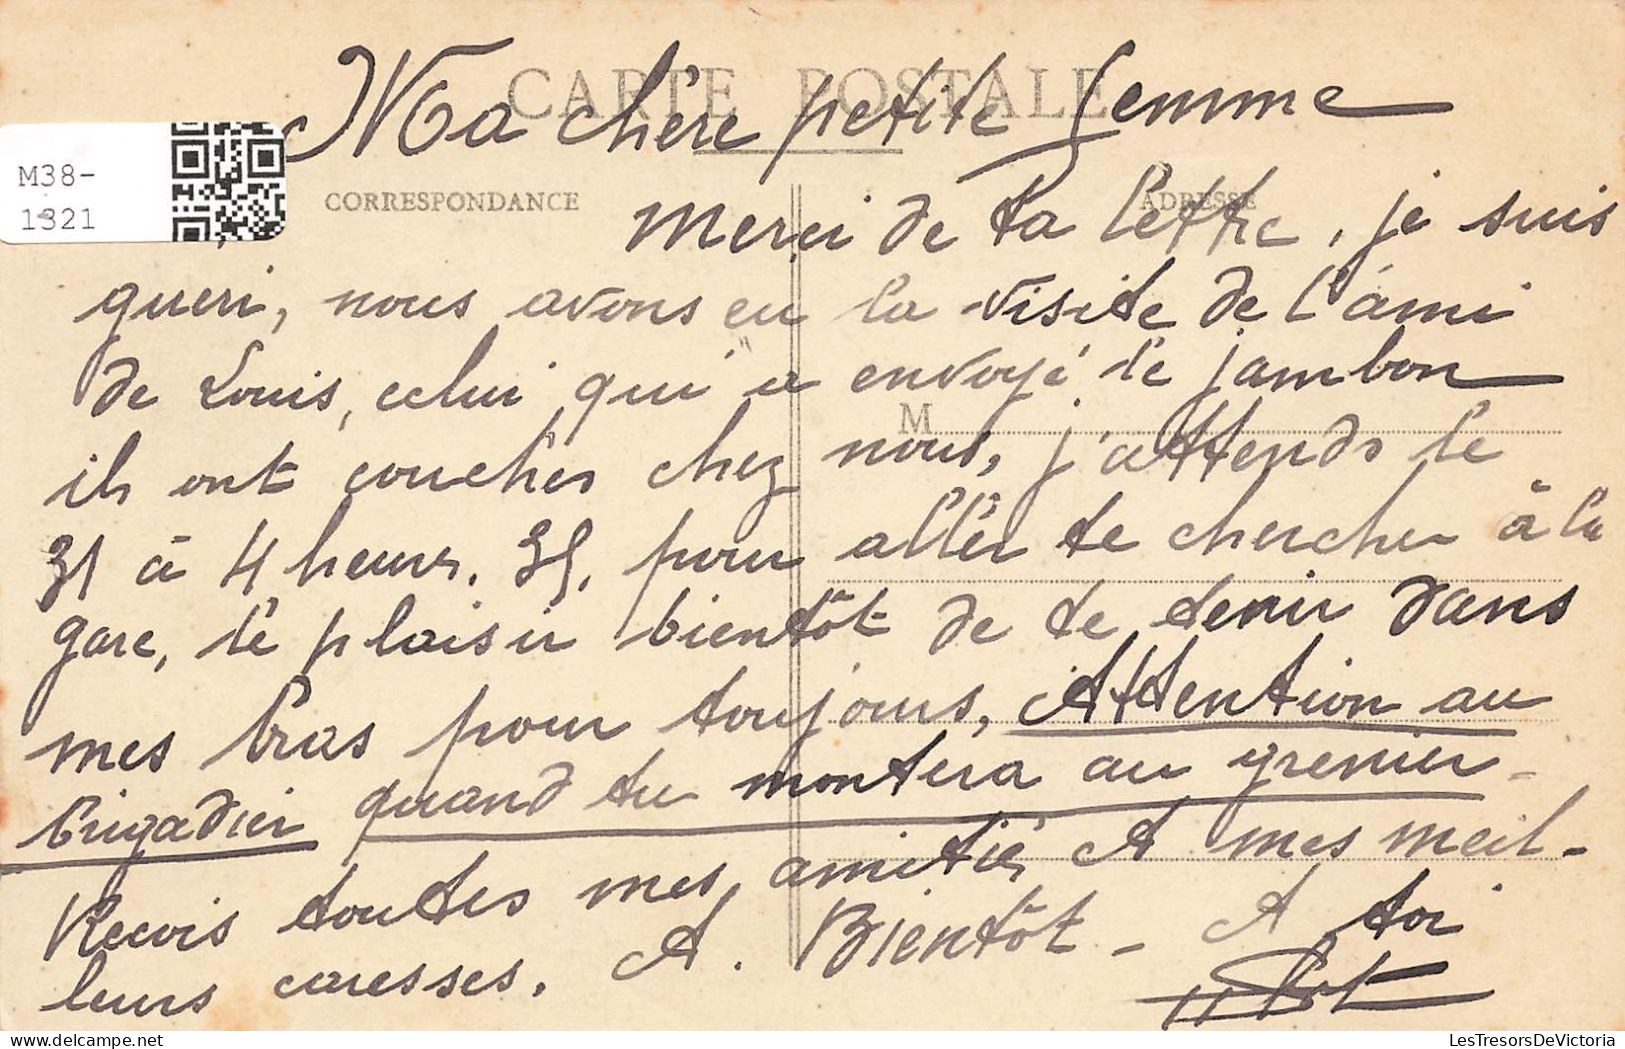 CARTE POSTALE
Ma chère petite femme
M38-
1321
CORRESPONDANCE
ADRESSE
Merci de ta lettre, je suis
gueri, nous avons eu la visite de l'ami
de Louis, celui qui a envoyé le jambon
M
ils ont couchés chez nous, j'attends le
31 à 4 heures. 35, pour aller te chercher à la
gare, le plaisir bientôt de te tenir dans
mes bras pour toujours, Attention au
brigadier quand tu montera au grenier -
Recois toutes mes amitiés et mes meil-
leurs caresses. A. Bientôt - A toi
LesTresorsDeVictoria